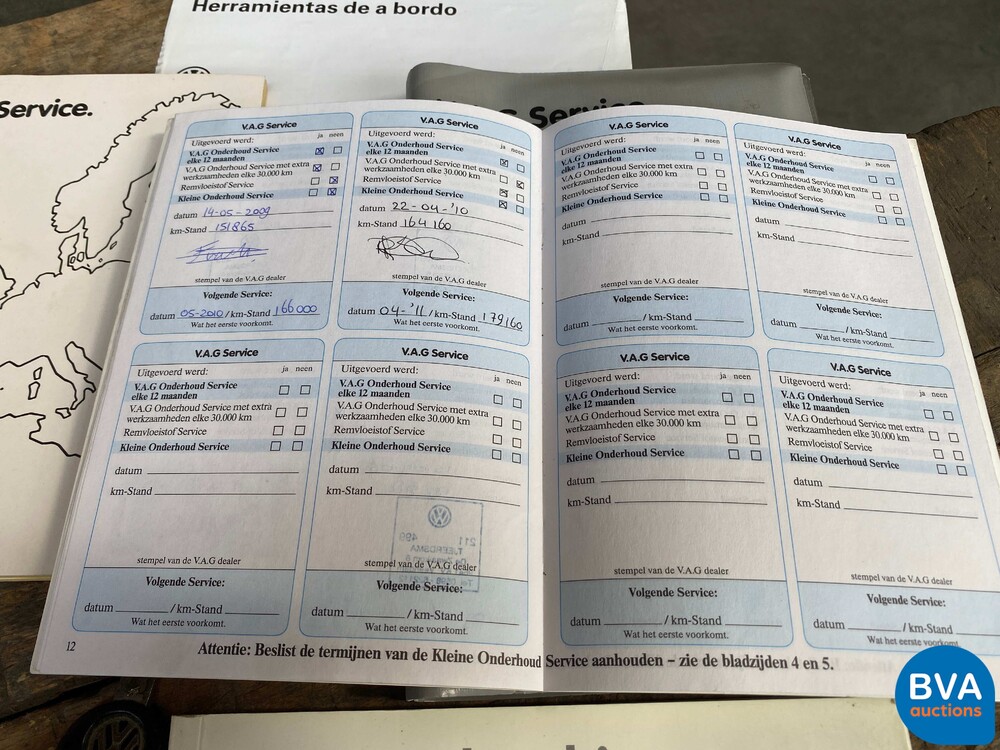 Herramientas de a bordo
Service.
V.A.G Service
V.A.G Service
Uitgevoerd werd:
ja neen
V.A.G Onderhoud Service
elke 12 maanden
V.A.G Onderhoud Service met extra
werkzaamheden elke 30.000 km
Remvloeistof Service
Kleine Onderhoud Service
datum 14-05-2009
km-Stand 151865
stempel van de V.A.G dealer
Volgende Service:
datum 05-2010 / km-Stand 166000
Wat het eerste voorkomt.
V.A.G Service
Uitgevoerd werd:
ja neen
V.A.G Onderhoud Service
elke 12 maanden
V.A.G Onderhoud Service met extra
werkzaamheden elke 30.000 km
Remvloeistof Service
Kleine Onderhoud Service
datum 22-04-'10
km-Stand 164160
stempel van de V.A.G dealer
Volgende Service:
datum 04-'11 / km-Stand 179160
Wat het eerste voorkomt.
V.A.G Service
Uitgevoerd werd:
ja neen
V.A.G Onderhoud Service
elke 12 maanden
V.A.G Onderhoud Service met extra
werkzaamheden elke 30.000 km
Remvloeistof Service
Kleine Onderhoud Service
datum
km-Stand
stempel van de V.A.G dealer
Volgende Service:
datum / km-Stand
Wat het eerste voorkomt.
V.A.G Service
Uitgevoerd werd:
ja neen
V.A.G Onderhoud Service
elke 12 maanden
V.A.G Onderhoud Service met extra
werkzaamheden elke 30.000 km
Remvloeistof Service
Kleine Onderhoud Service
datum
km-Stand
stempel van de V.A.G dealer
Volgende Service:
datum / km-Stand
Wat het eerste voorkomt.
V.A.G Service
Uitgevoerd werd:
ja neen
V.A.G Onderhoud Service
elke 12 maanden
V.A.G Onderhoud Service met extra
werkzaamheden elke 30.000 km
Remvloeistof Service
Kleine Onderhoud Service
datum
km-Stand
stempel van de V.A.G dealer
Volgende Service:
datum / km-Stand
Wat het eerste voorkomt.
V.A.G Service
Uitgevoerd werd:
ja neen
V.A.G Onderhoud Service
elke 12 maanden
V.A.G Onderhoud Service met extra
werkzaamheden elke 30.000 km
Remvloeistof Service
Kleine Onderhoud Service
datum
km-Stand
stempel van de V.A.G dealer
Volgende Service:
datum / km-Stand
Wat het eerste voorkomt.
V.A.G Service
Uitgevoerd werd:
ja neen
V.A.G Onderhoud Service
elke 12 maanden
V.A.G Onderhoud Service met extra
werkzaamheden elke 30.000 km
Remvloeistof Service
Kleine Onderhoud Service
datum
km-Stand
stempel van de V.A.G dealer
Volgende Service:
datum / km-Stand
Wat het eerste voorkomt.
V.A.G Service
Uitgevoerd werd:
ja neen
V.A.G Onderhoud Service
elke 12 maanden
V.A.G Onderhoud Service met extra
werkzaamheden elke 30.000 km
Remvloeistof Service
Kleine Onderhoud Service
datum
km-Stand
stempel van de V.A.G dealer
Volgende Service:
datum / km-Stand
Wat het eerste voorkomt.
12
Attentie: Beslist de termijnen van de Kleine Onderhoud Service aanhouden – zie de bladzijden 4 en 5.
BVA
auctions